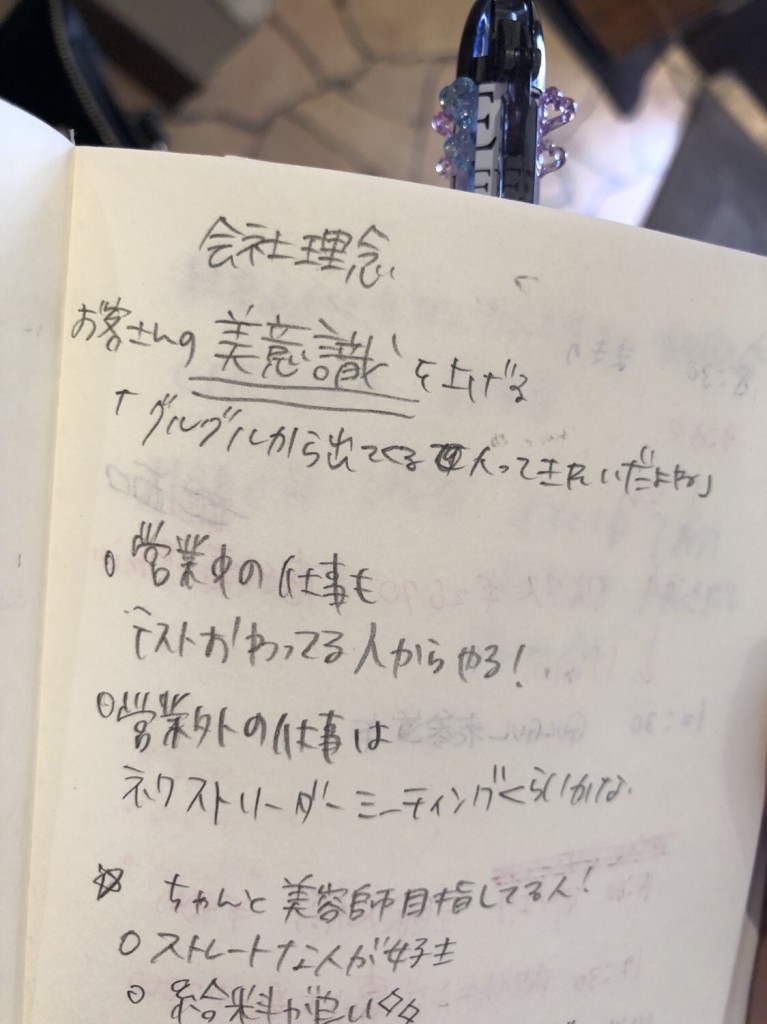 会社理念
お客さんの美意識を上げる
「グルグルから出てくる ってきれいだよね」
○ 営業中の仕事も
テストおわってる人からやる!
○ 営業外の仕事は
ネクストリーダーミーティングくらいかな.
☆ ちゃんと美容師目指してる人!
○ ストレートな人が好き
○ 給料が良い